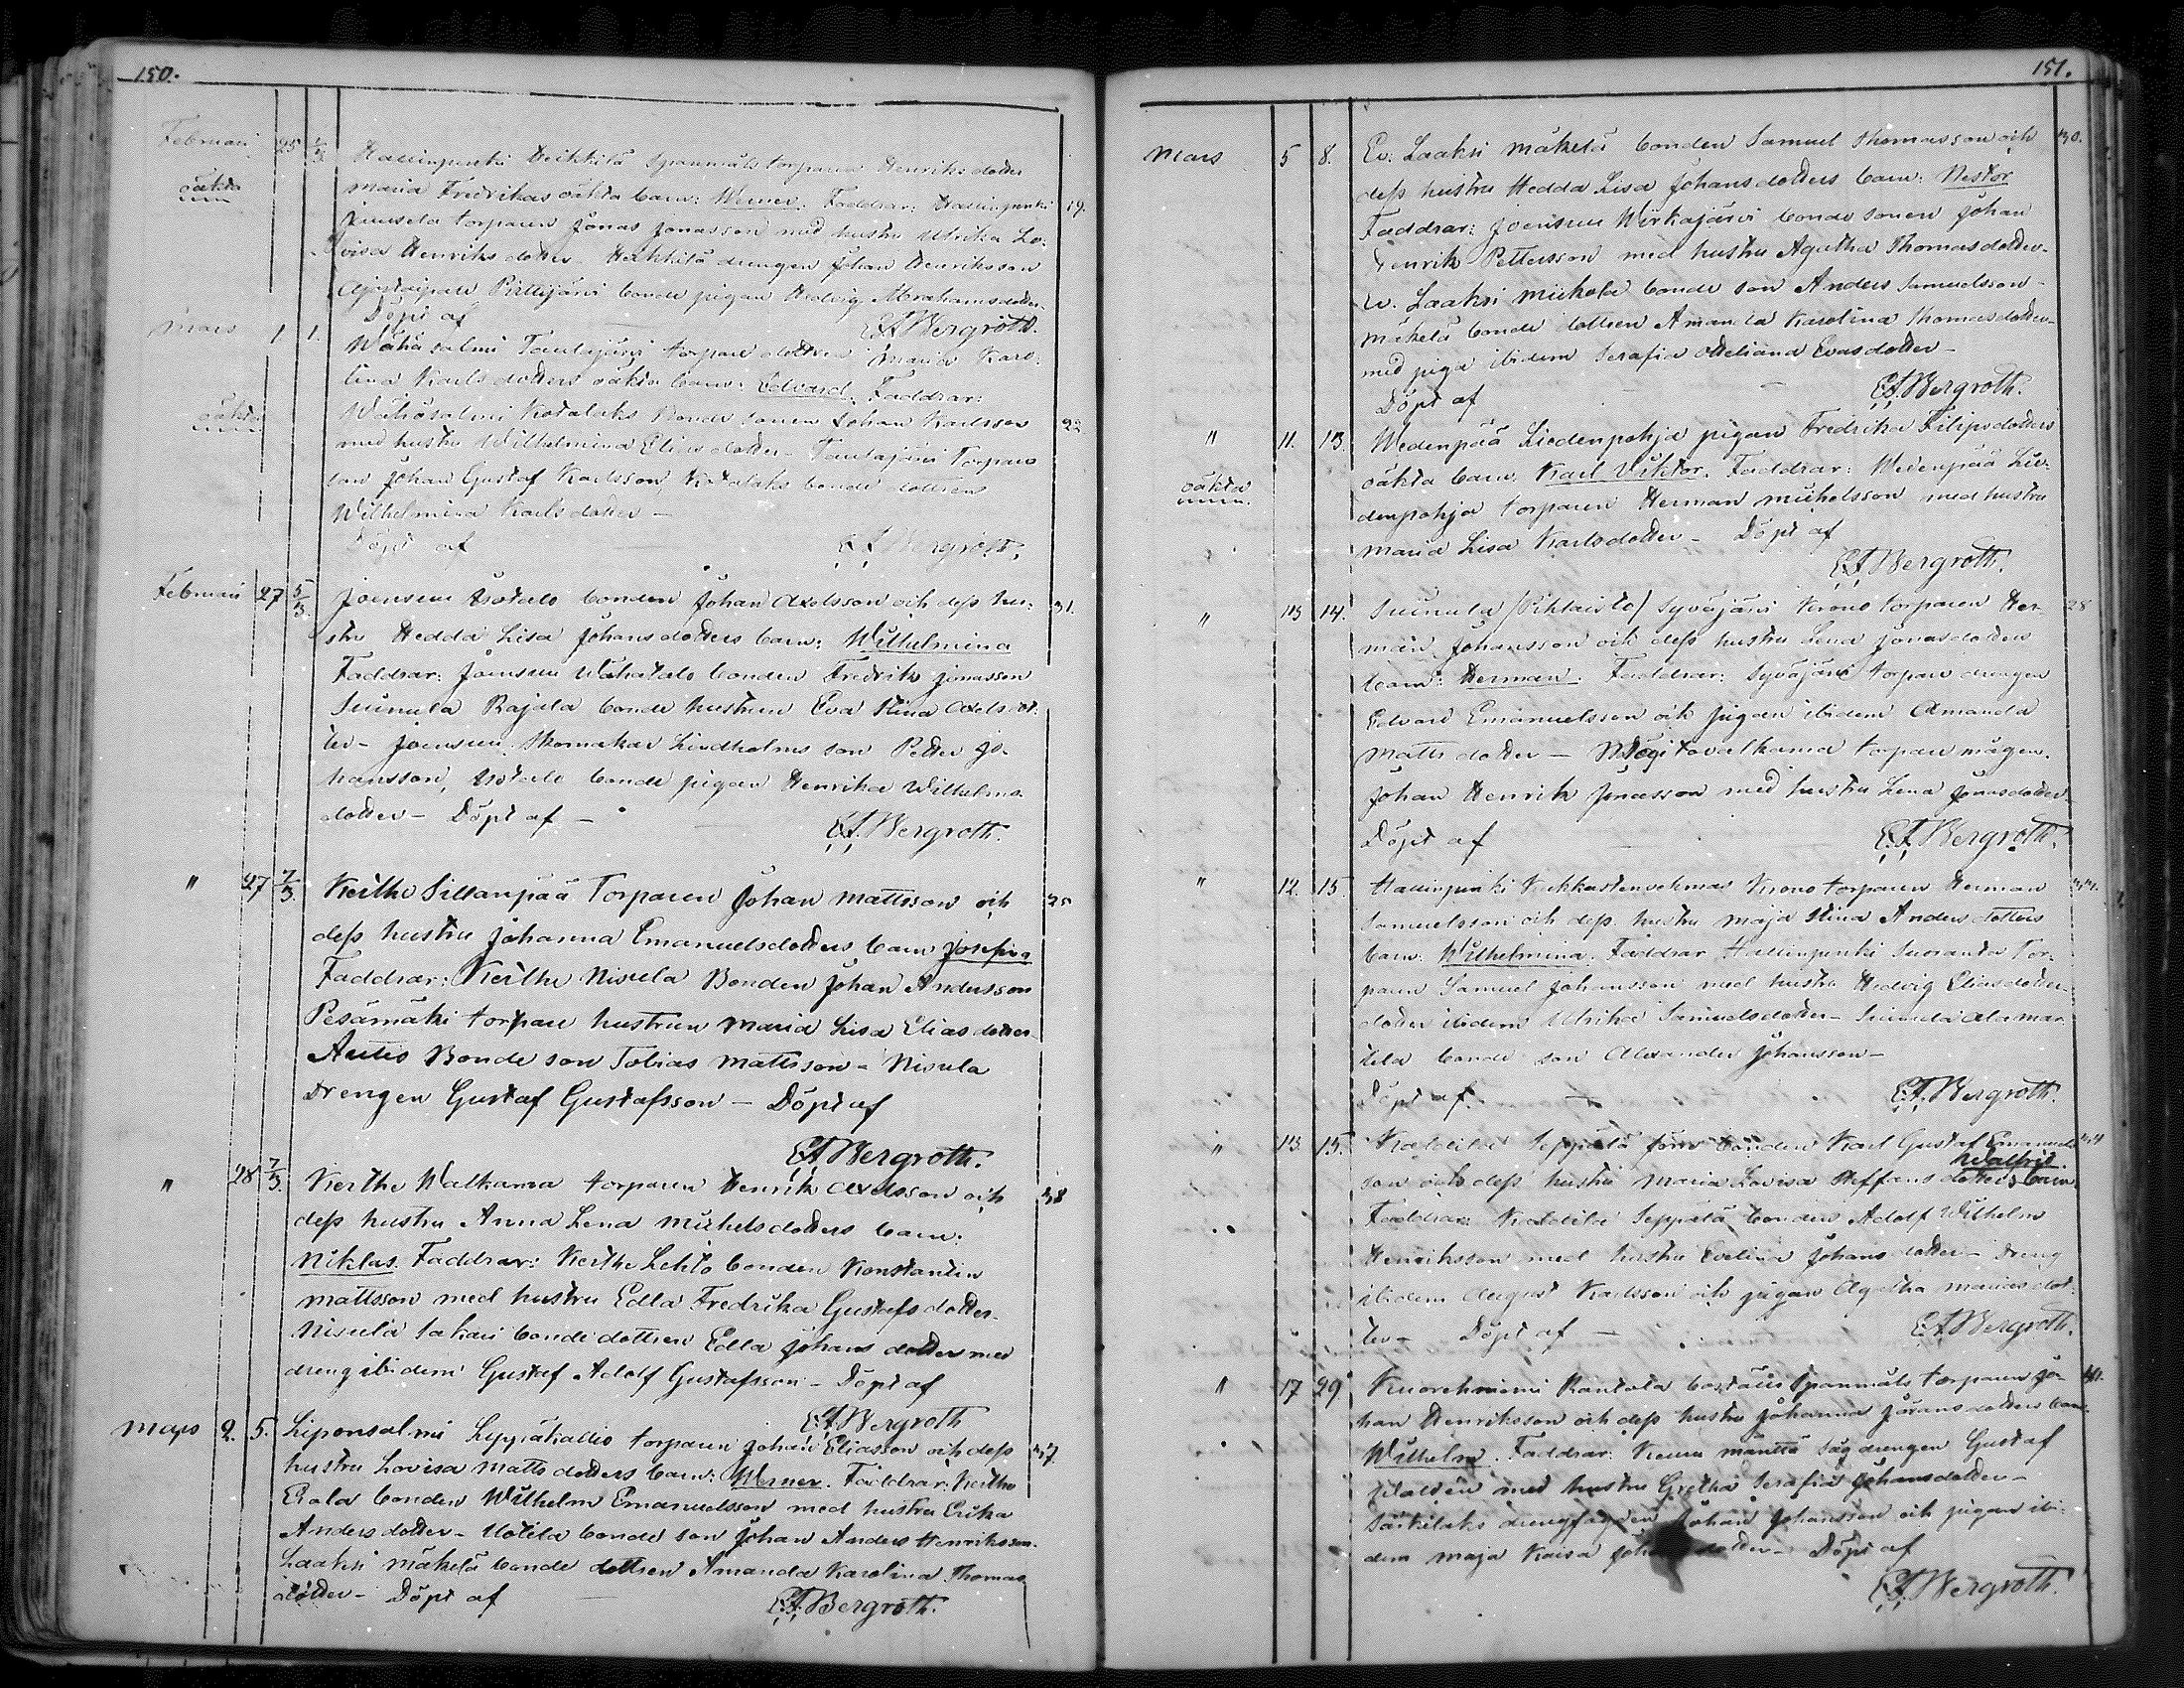 150.
Februari 25 2/3 Hallinpenki Heikkilä Spannmåls torparen Henriks dotter
oäkta Maria Fredrikas oäkta barn: Werner. Faddrar: Hallinpenki 19.
torparen Jonas Jonasson med hustru Ulrika Lo-
visa Henriks dotter - Heikkilä drengen Johan Henriksson
Pirttijärvi bonde pigan Hedvig Abrahamsdotter.
Döpt af E.A.Bergroth.
Mars 1 1. Wähäsalmi Tautajärvi torpare dottren Maria Karo-
lina Karls dotters oäkta barn: Edvard. Faddrar:
oäkta Wähäsalmi Kotalaks Bonde sonen Johan Karlsson 22
med hustru Wilhelmina Elias dotter - Tautajärvi Torpare
son Johan Gustaf Karlsson, Kotalaks bonde dottren
Wilhelmina Karls dotter -
Döpt af E.A.Bergroth.
Februari 27 5/3. Joensuu Isotalo bonden Johan Axelsson och dess hu- 31.
stru Hedda Lisa Johansdotters barn: Wilhelmina
Faddrar: Joensuu Wähätalo bonden Fredrik Jonasson
Suinula Rajala bonde hustrun Eva Stina Axelsdot-
ter - Joensuu Skomakar Lindholms son Petter Jo-
hansson, Isotalo bonde pigan Henrika Wilhelms
dotter - Döpt af -
E.A.Bergroth.
" 27 7/3. Keitho Sillanpää Torparen Johan Mattsson och 25
dess hustru Johanna Emanuelsdotters barn Josefina
Faddrar: Keitho Nisula Bonden Johan Andersson
Pesämäki torpare hustrun Maria Lisa Elias dotter
Autio Bonde son Tobias Mattsson - Nisula
Drengen Gustaf Gustafsson - Döpt af
E.A.Bergroth.
" 28 7/3. Keitho Walkama torparen Henrik Axelsson och 38
dess hustru Anna Lena Mickelsdotters barn:
Niklas. Faddrar: Keitho Lehto bonden Konstantin
Mattsson med hustru Edla Fredrika Gustafs dotter-
Nisula Sakari bonde dottren Edla Johans dotter med
dreng ibidem Gustaf Adolf Gustafsson - Döpt af
E.A.Bergroth
Mars 2. 5. Liponsalmi Leppäkallio torparen Johan Eliasson och dess 37
hustru Lovisa Matts dotters barn: Werner. Faddrar: Keitho
Erola bonden Wilhelm Emanuelsson med hustru Erika
Anders dotter - Uotila bonde son Johan Anders Henriksson.
Laaksi Mäkelä bonde dottren Amanda Karolina Thomas
dotter - Döpt af E.A.Bergroth.
151.
Mars 5 8. Ev. Laaksi Mäkelä bonden Samuel Thomasson och 30.
dess hustru Hedda Lisa Johansdotters barn: Nestor
Faddrar: Joensuu Wirkajärvi bonde sonen Johan
Henrik Pettersson med hustru Agatha Thomasdotter-
Ev. Laaksi Mickola bonde son Anders Samuelsson -
Mäkelä bonde dottren Amanda Karolina Thomasdotter-
med piga ibidem Serafia Otteliana Evasdotter -
Döpt af E.A.Bergroth.
" 11. 13. Wedenpää Liedenpohja pigan Fredrika Filipsdotters
oäkta oäkta barn Karl Viktor. Faddrar: Wedenpää Lie-
denpohja torparen Herman Mickelsson med hustru
Maria Lisa Karlsdotter - Döpt af
E.A.Bergroth.
" 13 14. Suinula /Pihlaisto/ Syväjärvi Krono torparen Her- 28
man Johansson och dess hustru Lena Jonasdotters
barn: Herman. Faddrar: Syväjärvi torpare drengen
Edvard Emanuelsson och pigan ibidem Amanda
Matts dotter - torpare mågen
Johan Henrik Jonasson med hustru Lena Jonasdotter
Döpt af E.A.Bergroth.
" 12. 15. Hallinpenki Krono torparen Herman
Samuelsson och dess hustru Maja Stina Anders dotters
barn: Wilhelmina. Faddrar Hallinpenki Suoranta Tor-
paren Samuel Johansson med hustru Hedvig Eliasdotter-
dotter ibidem Ulrika Samuelsdotter - Suinula Alamar-
tila bonde son Alexander Johansson -
Döpt af. E.A.Bergroth.
" 13 15. Seppälä bonden Karl Gustaf Emanuels
son och dess hustru Maria Lovisa Steffans dotters barn Walfrid.
Faddrar: Seppälä bonden Adolf Wilhelm
Henriksson med hustru Evelina Johans dotter - dreng
ibidem August Karlsson och pigan Agatha Mariasdot-
ter - Döpt af - E.A.Bergroth.
" 17 29 Kuorehniemi Rantala boställs Spannmåls torparen Jo- 40.
han Henriksson och dess hustru Johanna Jöransdotters barn
Wilhelm. Faddrar: Keuru Mänttä såg drengen Gustaf
med hustru Gretha Serafia Johansdotter -
Särkilaks Johan Johansson och pigan ibi-
dem Maja Kaisa dotter - Döpt af
E.A.Bergroth.